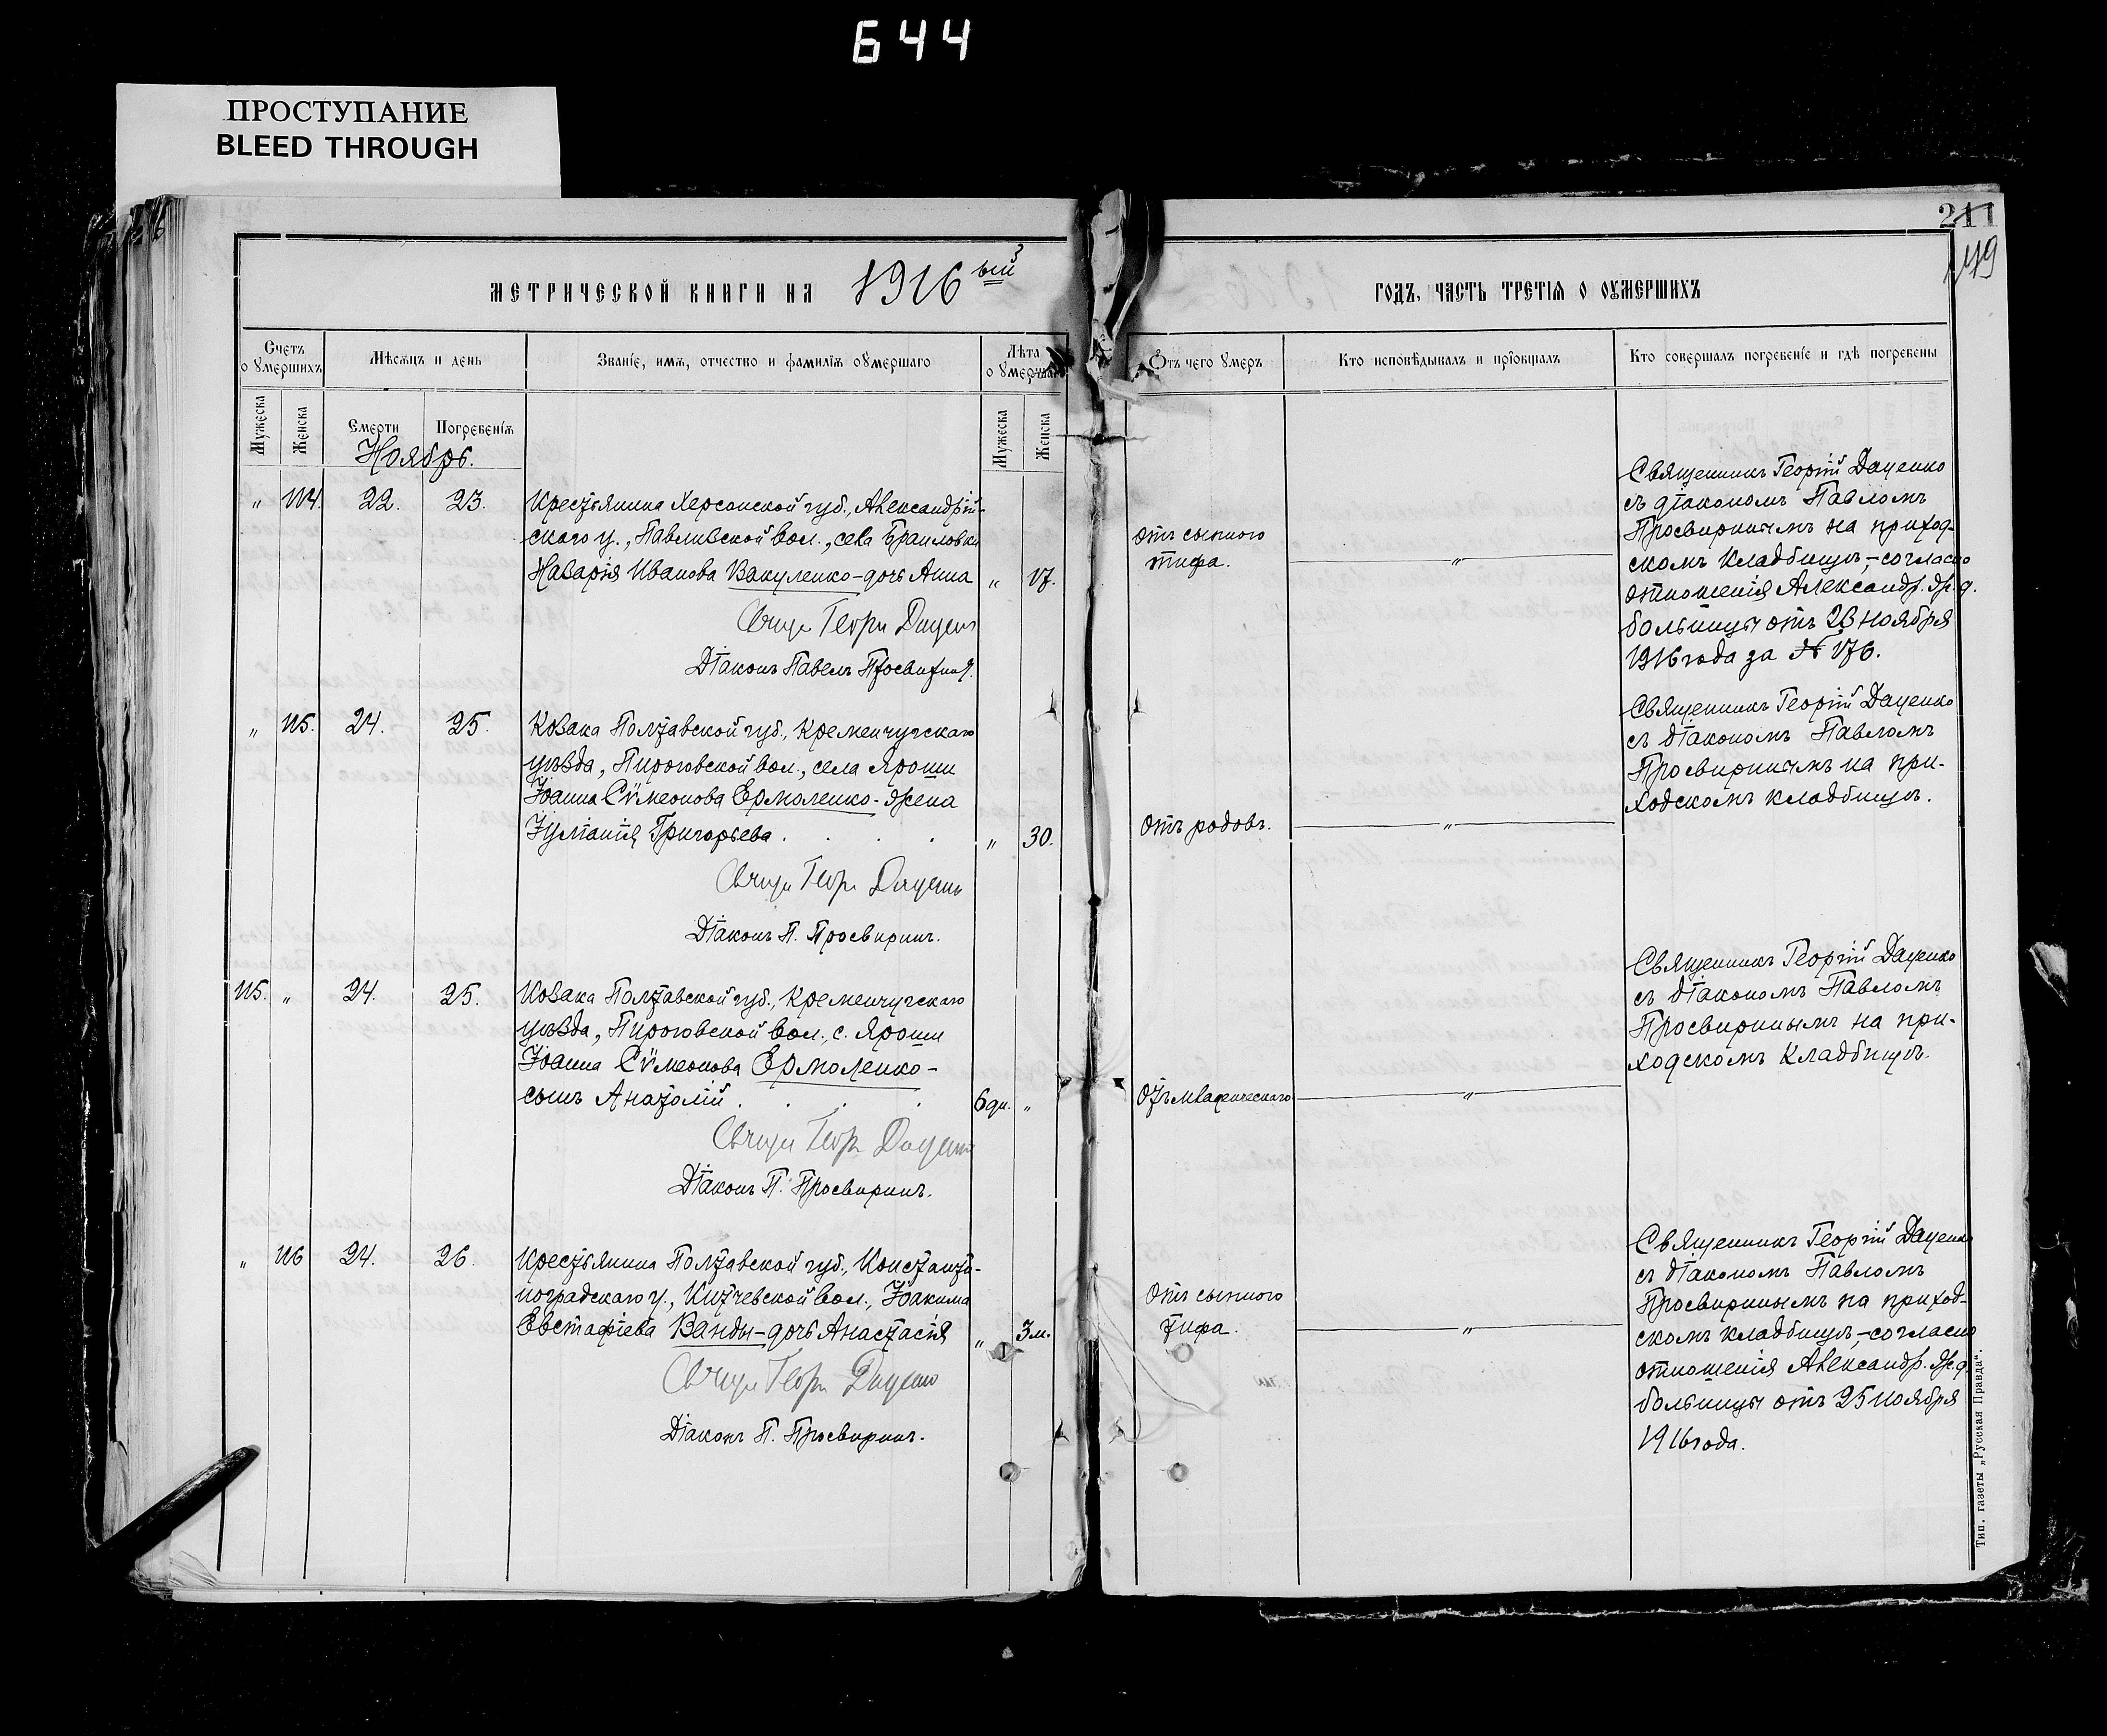 644
ПРОСТУПАНИЕ
BLEED THROUGH
211
149
МЕТРИЧЕСКОЙ КНИГИ НА 1916 ый
ГОДЪ, ЧАСТЬ ТРЕТІЯ О ОУМЕРШИХЪ
Счетъ оумершихъ
Мѣсяцъ и день
Званіе, имя, отчество и фамилія оумершаго
Лѣта оумершаго
Отъ чего умеръ
Кто исповѣдывалъ и пріобщалъ
Кто совершалъ погребеніе и гдѣ погребены
Мужеска
Женска
Смерти
Погребенія
Мужеска
Женска
Ноябрь.
" 114. 22. 23.
Крестьянина Херсонской губ., Александрій-
скаго у., Павлишской вол., села Браиловки
Назарія Иванова Вакуленко-дочь Анна " 17.
Свящ Георгі Даценко
Діаконъ Павелъ Просвирнин.
отъ сыпного
тифа. "
Священникъ Георгій Даценко
съ діакономъ Павломъ
Просвирнинымъ на приход-
скомъ кладбищѣ,-согласно
отношенія Александр. ж. д.
больницы отъ 23 ноября
1916 года за № 176.
" 115. 24. 25.
Козака Полтавской губ., Кременчугскаго
уѣзда, Пироговской вол., села Яроши
Іоанна Сѵмеонова Ермоленко-жена
Іуліанія Григорьева . . . . " 30.
Свящ Георгі Даценко
Діаконъ П. Просвирнинъ.
Отъ родовъ. "
Священникъ Георгій Даценко
съ діакономъ Павломъ
Просвирнинымъ на при-
ходскомъ кладбищѣ.
115. " 24. 25.
Козака Полтавской губ., Кременчугскаго
уѣзда, Пироговской вол., с. Яроши
Іоанна Сѵмеонова Ермоленко-
сынъ Анатолій . . . . 6 дн. "
Свящ Георгі Даценко
Діаконъ П. Просвирнинъ.
Отъ младенческаго "
Священникъ Георгій Даценко
съ діакономъ Павломъ
Просвирнинымъ на при-
ходскомъ кладбищѣ.
" 116 24. 26.
Крестьянина Полтавской губ., Константи-
ноградскаго у., Китчевской вол., Іоакима
Евстафіева Ванды-дочь Анастасія " 3 м.
Свящ Георгі Даценко
Діаконъ П. Просвирнинъ.
Отъ сыпного
тифа. "
Священникъ Георгій Даценко
съ діакономъ Павломъ
Просвирнинымъ на приход-
скомъ кладбищѣ,-согласно
отношенія Александр. ж. д.
больницы отъ 25 ноября
1916 года.
Тип. газеты „Русская Правда“.